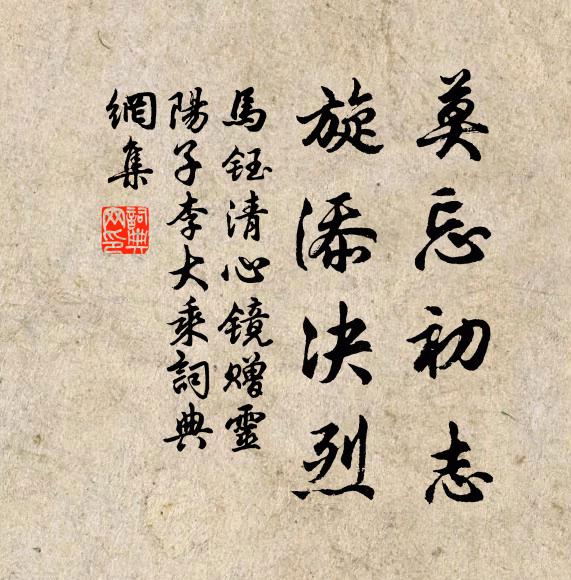 莫忘初志
旋添决烈
馬鈺清心镜赠靈
陽子李大乘詞典
網集
詞典网印